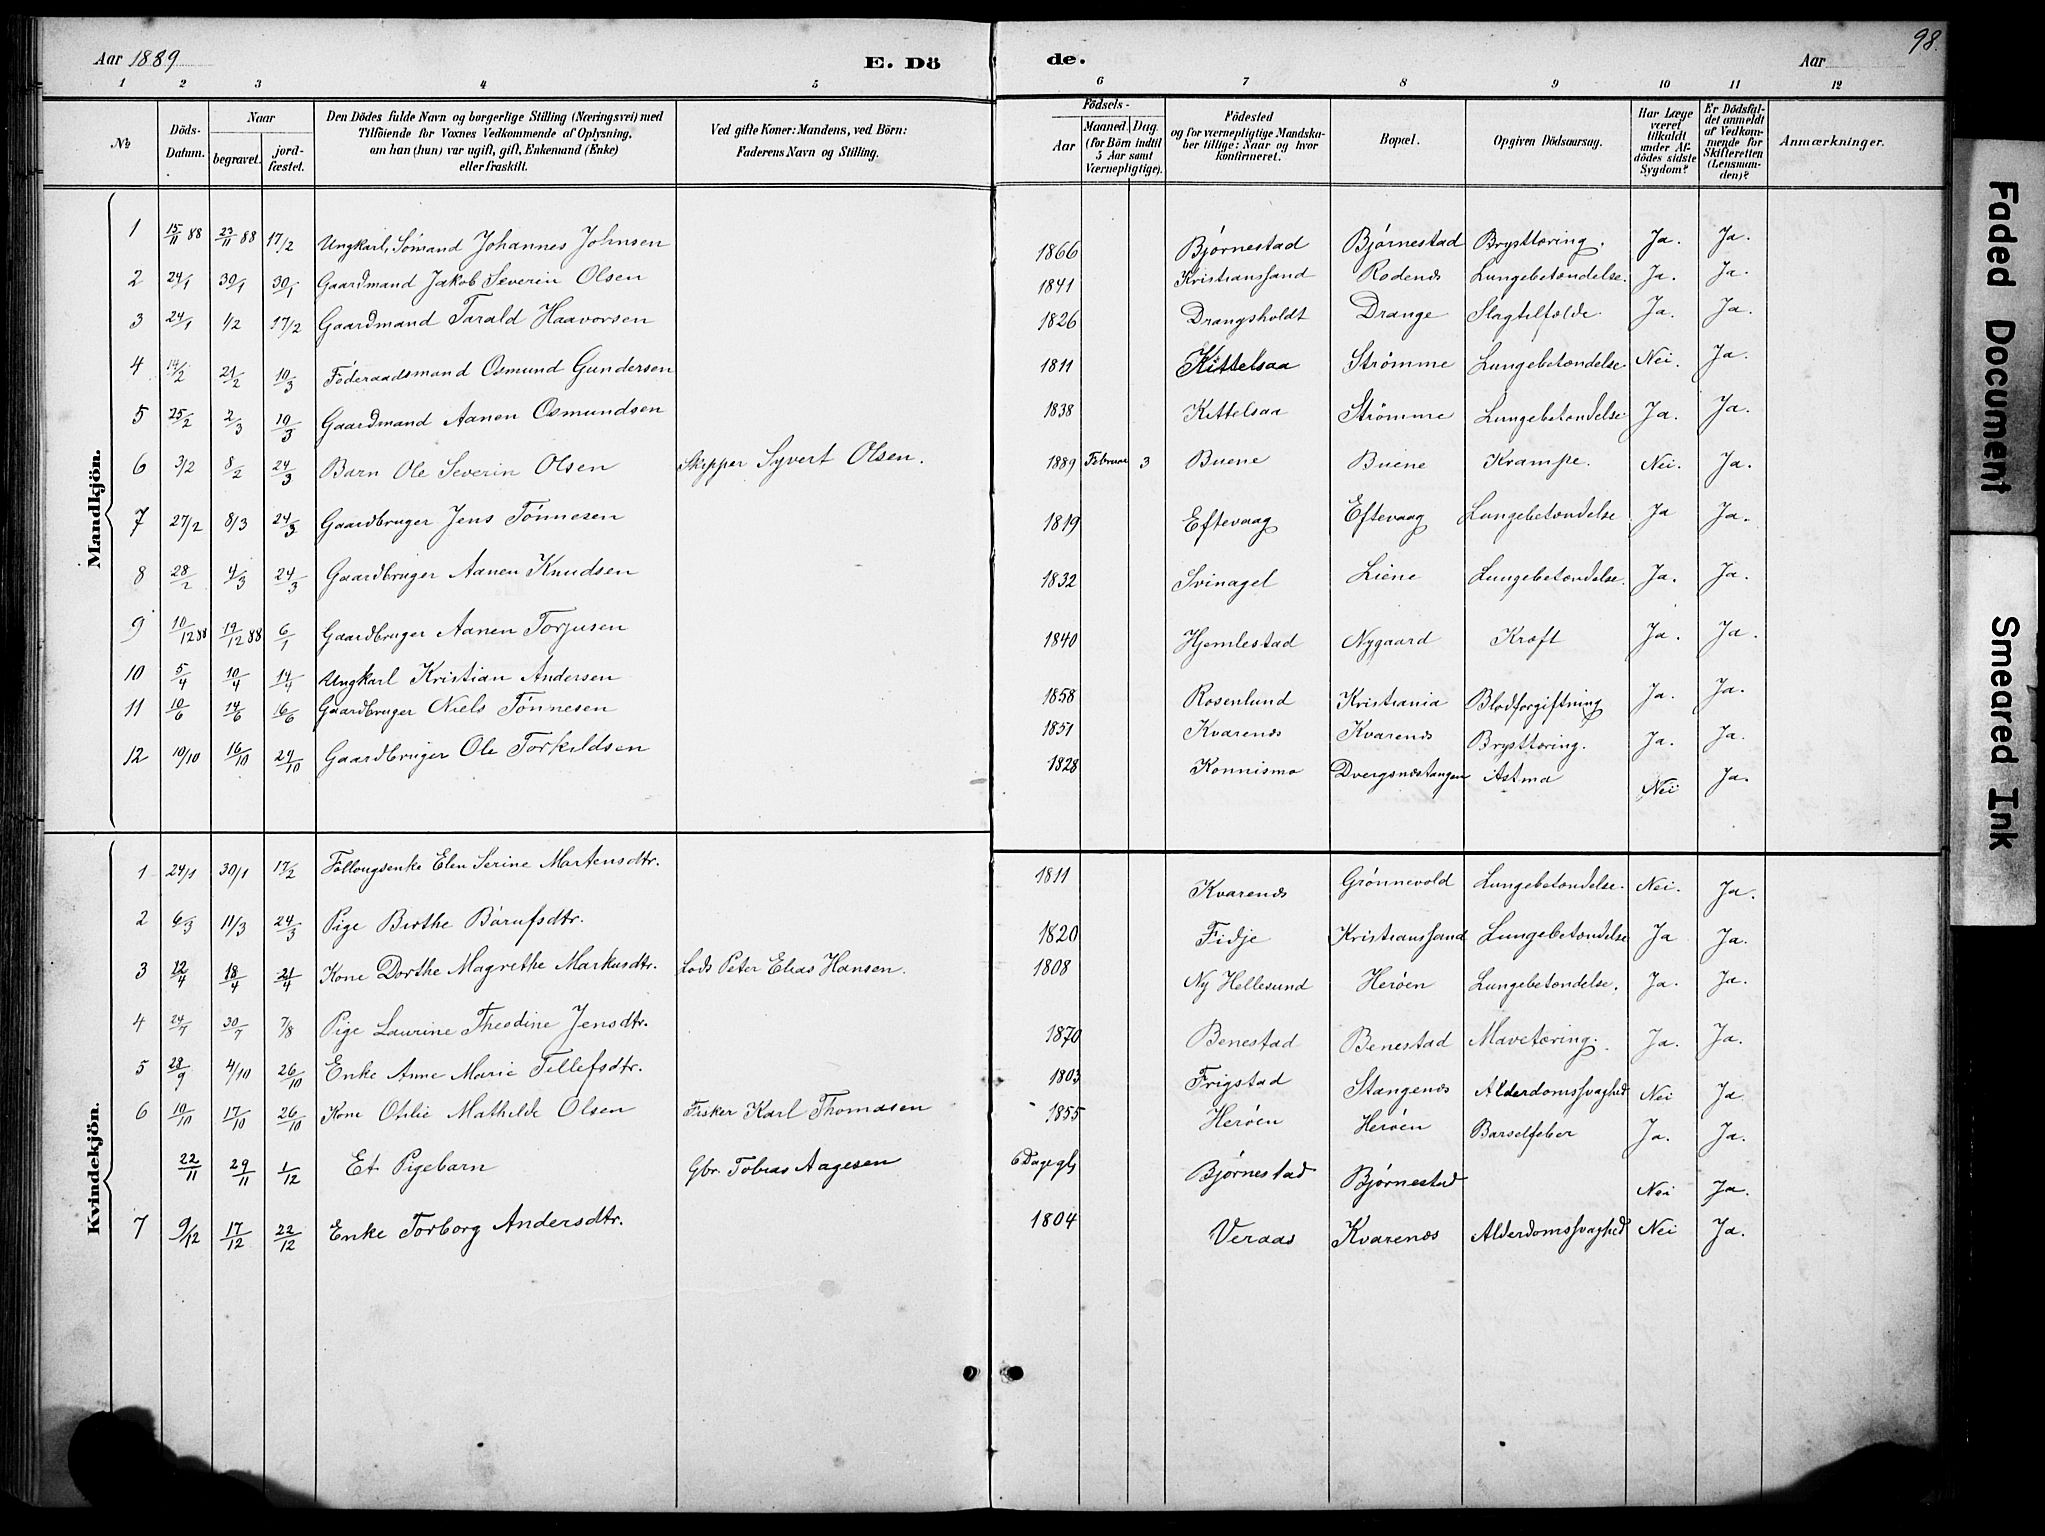 98.
Aar 1889 E. Dö de. Aar
1 2 3 4 5 6 7 8 9 10 11 12
№ Döds-Datum. Naar begravet. jordfæstet. Den Dödes fulde Navn og borgerlige Stilling (Næringsvei) med Tilföiende for Voxnes Vedkommende af Oplysning, om han (hun) var ugift, gift, Enkemand (Enke) eller fraskilt. Ved gifte Koner: Mandens, ved Börn: Faderens Navn og Stilling. Födsels- Aar Maaned. Dag. (for Börn indtil 5 Aar samt Værnepligtige). Födested og for værnepligtige Mandskaber tillige: Naar og hvor konfirmeret. Bopæl. Opgiven Dödsaarsag. Har Læge været tilkaldt under Afdödes sidste Sygdom? Er Dödsfaldet anmeldt af Vedkommende for Skifteretten (Lensmanden)? Anmærkninger.
Mandkjön.
1 15/11 88 23/11 88 17/2 Ungkarl, Sømand Johannes Johnsen 1866 Bjørnestad Bjørnestad Brysttæring. Ja. Ja.
2 24/1 30/1 30/1 Gaardmand Jakob Severin Olsen 1841 Kristianssand Rodenæs Lungebetændelse. Ja. Ja.
3 24/1 1/2 17/2 Gaardmand Tarald Haavorsen 1826 Drangsholdt Drange Slagtilfælde. Ja. Ja.
4 14/2 21/2 19/3 Føderaadsmand Osmund Gundersen 1811 Kittelsaa Strømme Lungebetændelse Nei. Ja.
5 25/2 2/3 19/3 Gaardmand Aanen Osmundsen 1838 Kittelsaa Strømme Lungebetændelse Ja. Ja.
6 3/2 8/2 24/3 Barn Ole Severin Olsen Skipper Syvert Olsen. 1889 Februar 3 Buene Buene Krampe. Nei. Ja.
7 27/2 8/3 24/3 Gaardbruger Jens Tønnesen 1819 Eftevaag Eftevaag Lungebetændelse Ja Ja.
8 28/2 4/3 24/3 Gaardbruger Aanen Knudsen 1832 Svinagel Liene Lungebetændelse. Ja. Ja.
9 10/12 88 19/12 88 6/1 Gaardbruger Aanen Torjusen 1840 Hjemlestad Nygaard Kræft Ja. Ja.
10 5/4 10/4 14/4 Ungkarl Kristian Andersen 1858 Rosenlund Kristiania Blodforgiftning Ja. Ja.
11 10/6 14/6 16/6 Gaardbruger Niels Tønnesen 1851 Kvarenæs Kvarenæs Brysttæring. Ja. Ja.
12 10/10 16/10 24/10 Gaardbruger Ole Torkildsen 1828 Konnismo Dvergsnæstangen Astma Nei Ja.
Kvindekjön.
1 24/1 30/1 17/2 Føllougsenke Elen Serine Martensdtr. 1811 Kvarenæs Grønnevold Lungebetændelse. Nei. Ja.
2 6/3 11/3 24/3 Pige Birthe Børufsdtr. 1820 Fidje Kristianssand Lungebetændelse Ja Ja.
3 12/4 18/4 21/4 Kone Dorthe Magrethe Markusdtr. Lods Peter Elias Hansen. 1808 Ny Hellesund Herøen Lungebetændelse. Ja. Ja.
4 24/7 30/7 7/8 Pige Laurine Theodine Jensdtr. 1870 Benestad Benestad Mavetæring. Ja. Ja.
5 28/9 4/10 26/10 Enke Anne Marie Tellefsdtr. 1803 Frigstad Stangenæs Alderdomssvaghed Nei Ja
6 10/10 17/10 26/10 Kone Otilie Mathilde Olsen Fisker Karl Thomasen 1855 Herøen Herøen Barselfeber Ja. Ja.
22/11 29/11 1/12 Et Pigebarn Gbr. Tobias Aagesen 6 Dage gl. Bjørnestad Bjørnestad Nei Ja.
7 9/12 17/12 22/12 Enke Torborg Andersdtr. 1804 Veraas Kvarenæs Alderdomssvaghed Nei Ja.
Faded Document
Smeared Ink